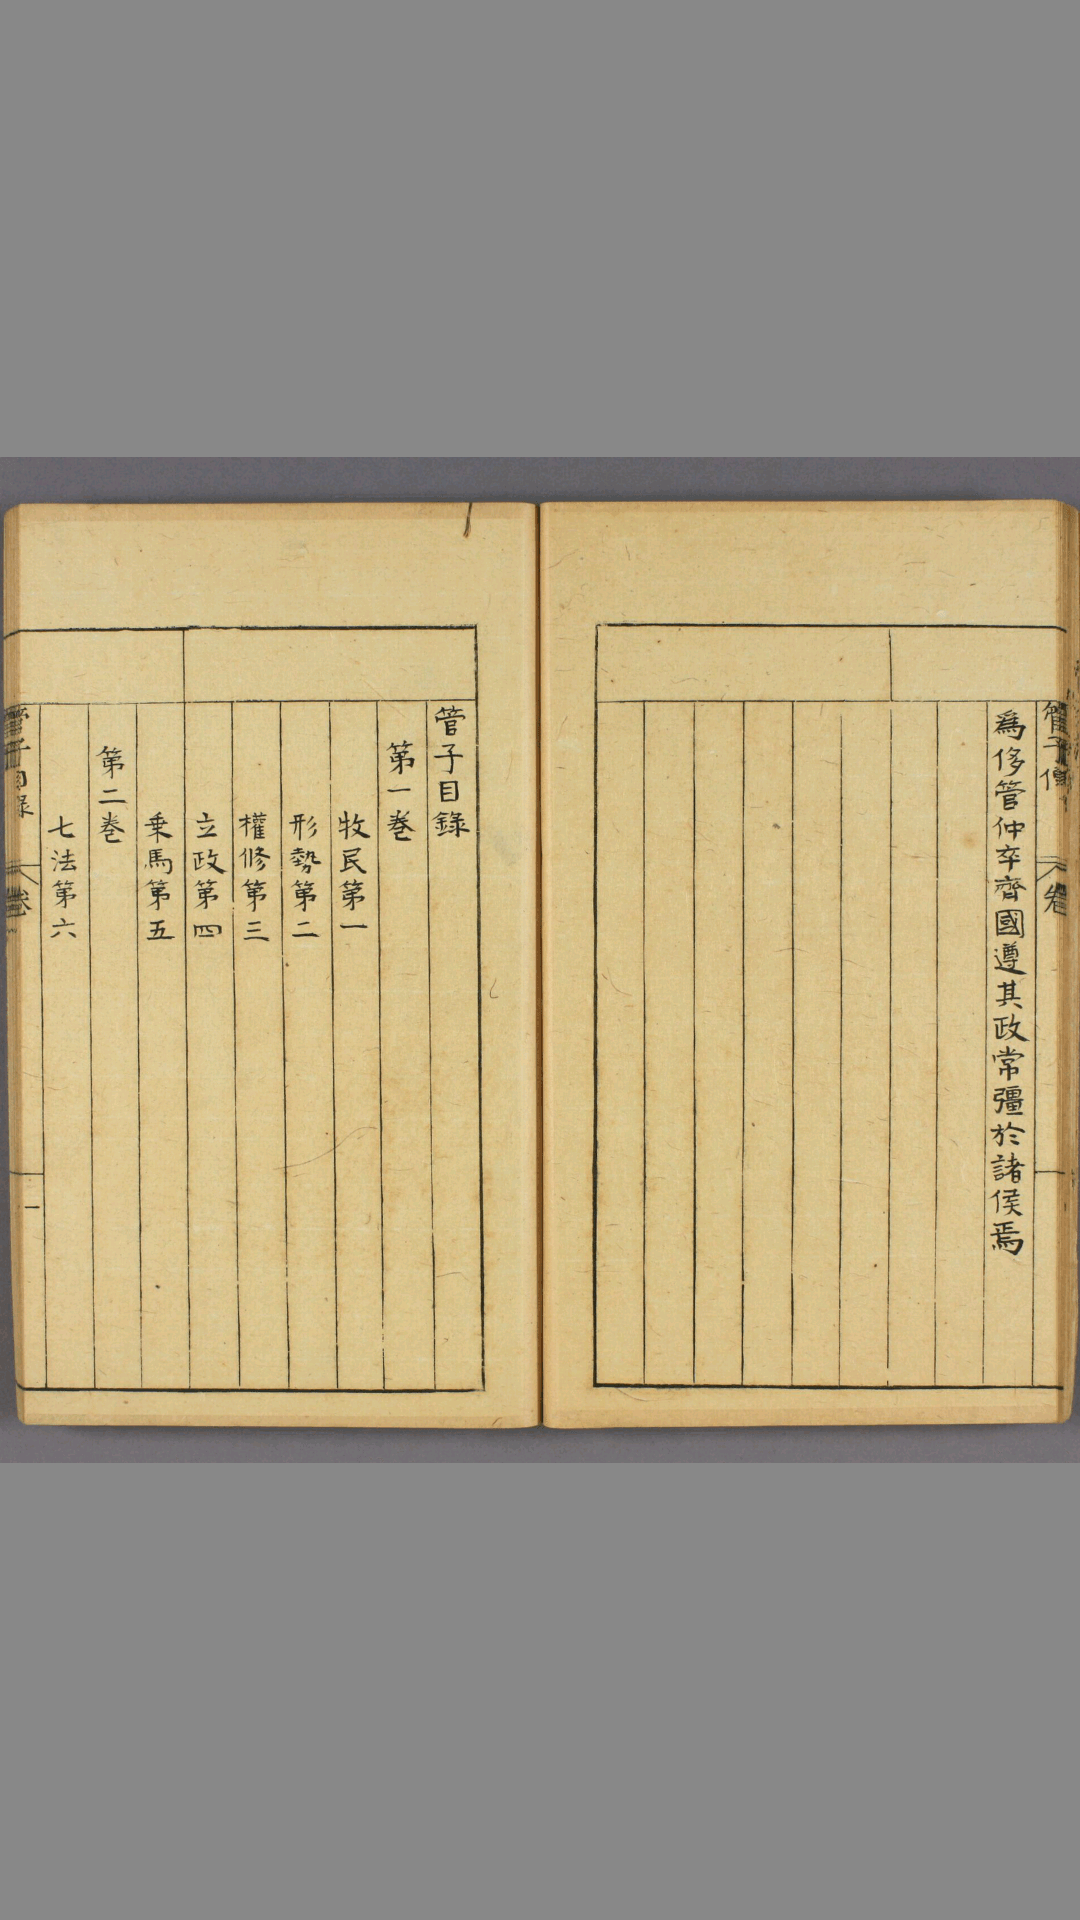 管子傳
卷
爲侈管仲卒齊國遵其政常彊於諸侯焉
管子目錄
第一卷
牧民第一
形勢第二
權修第三
立政第四
乗馬第五
第二卷
七法第六
管子目録
卷
一